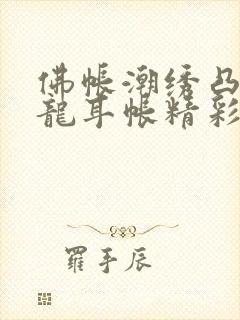 佛帐潮绣凸
龍耳帐精彩
羅手辰